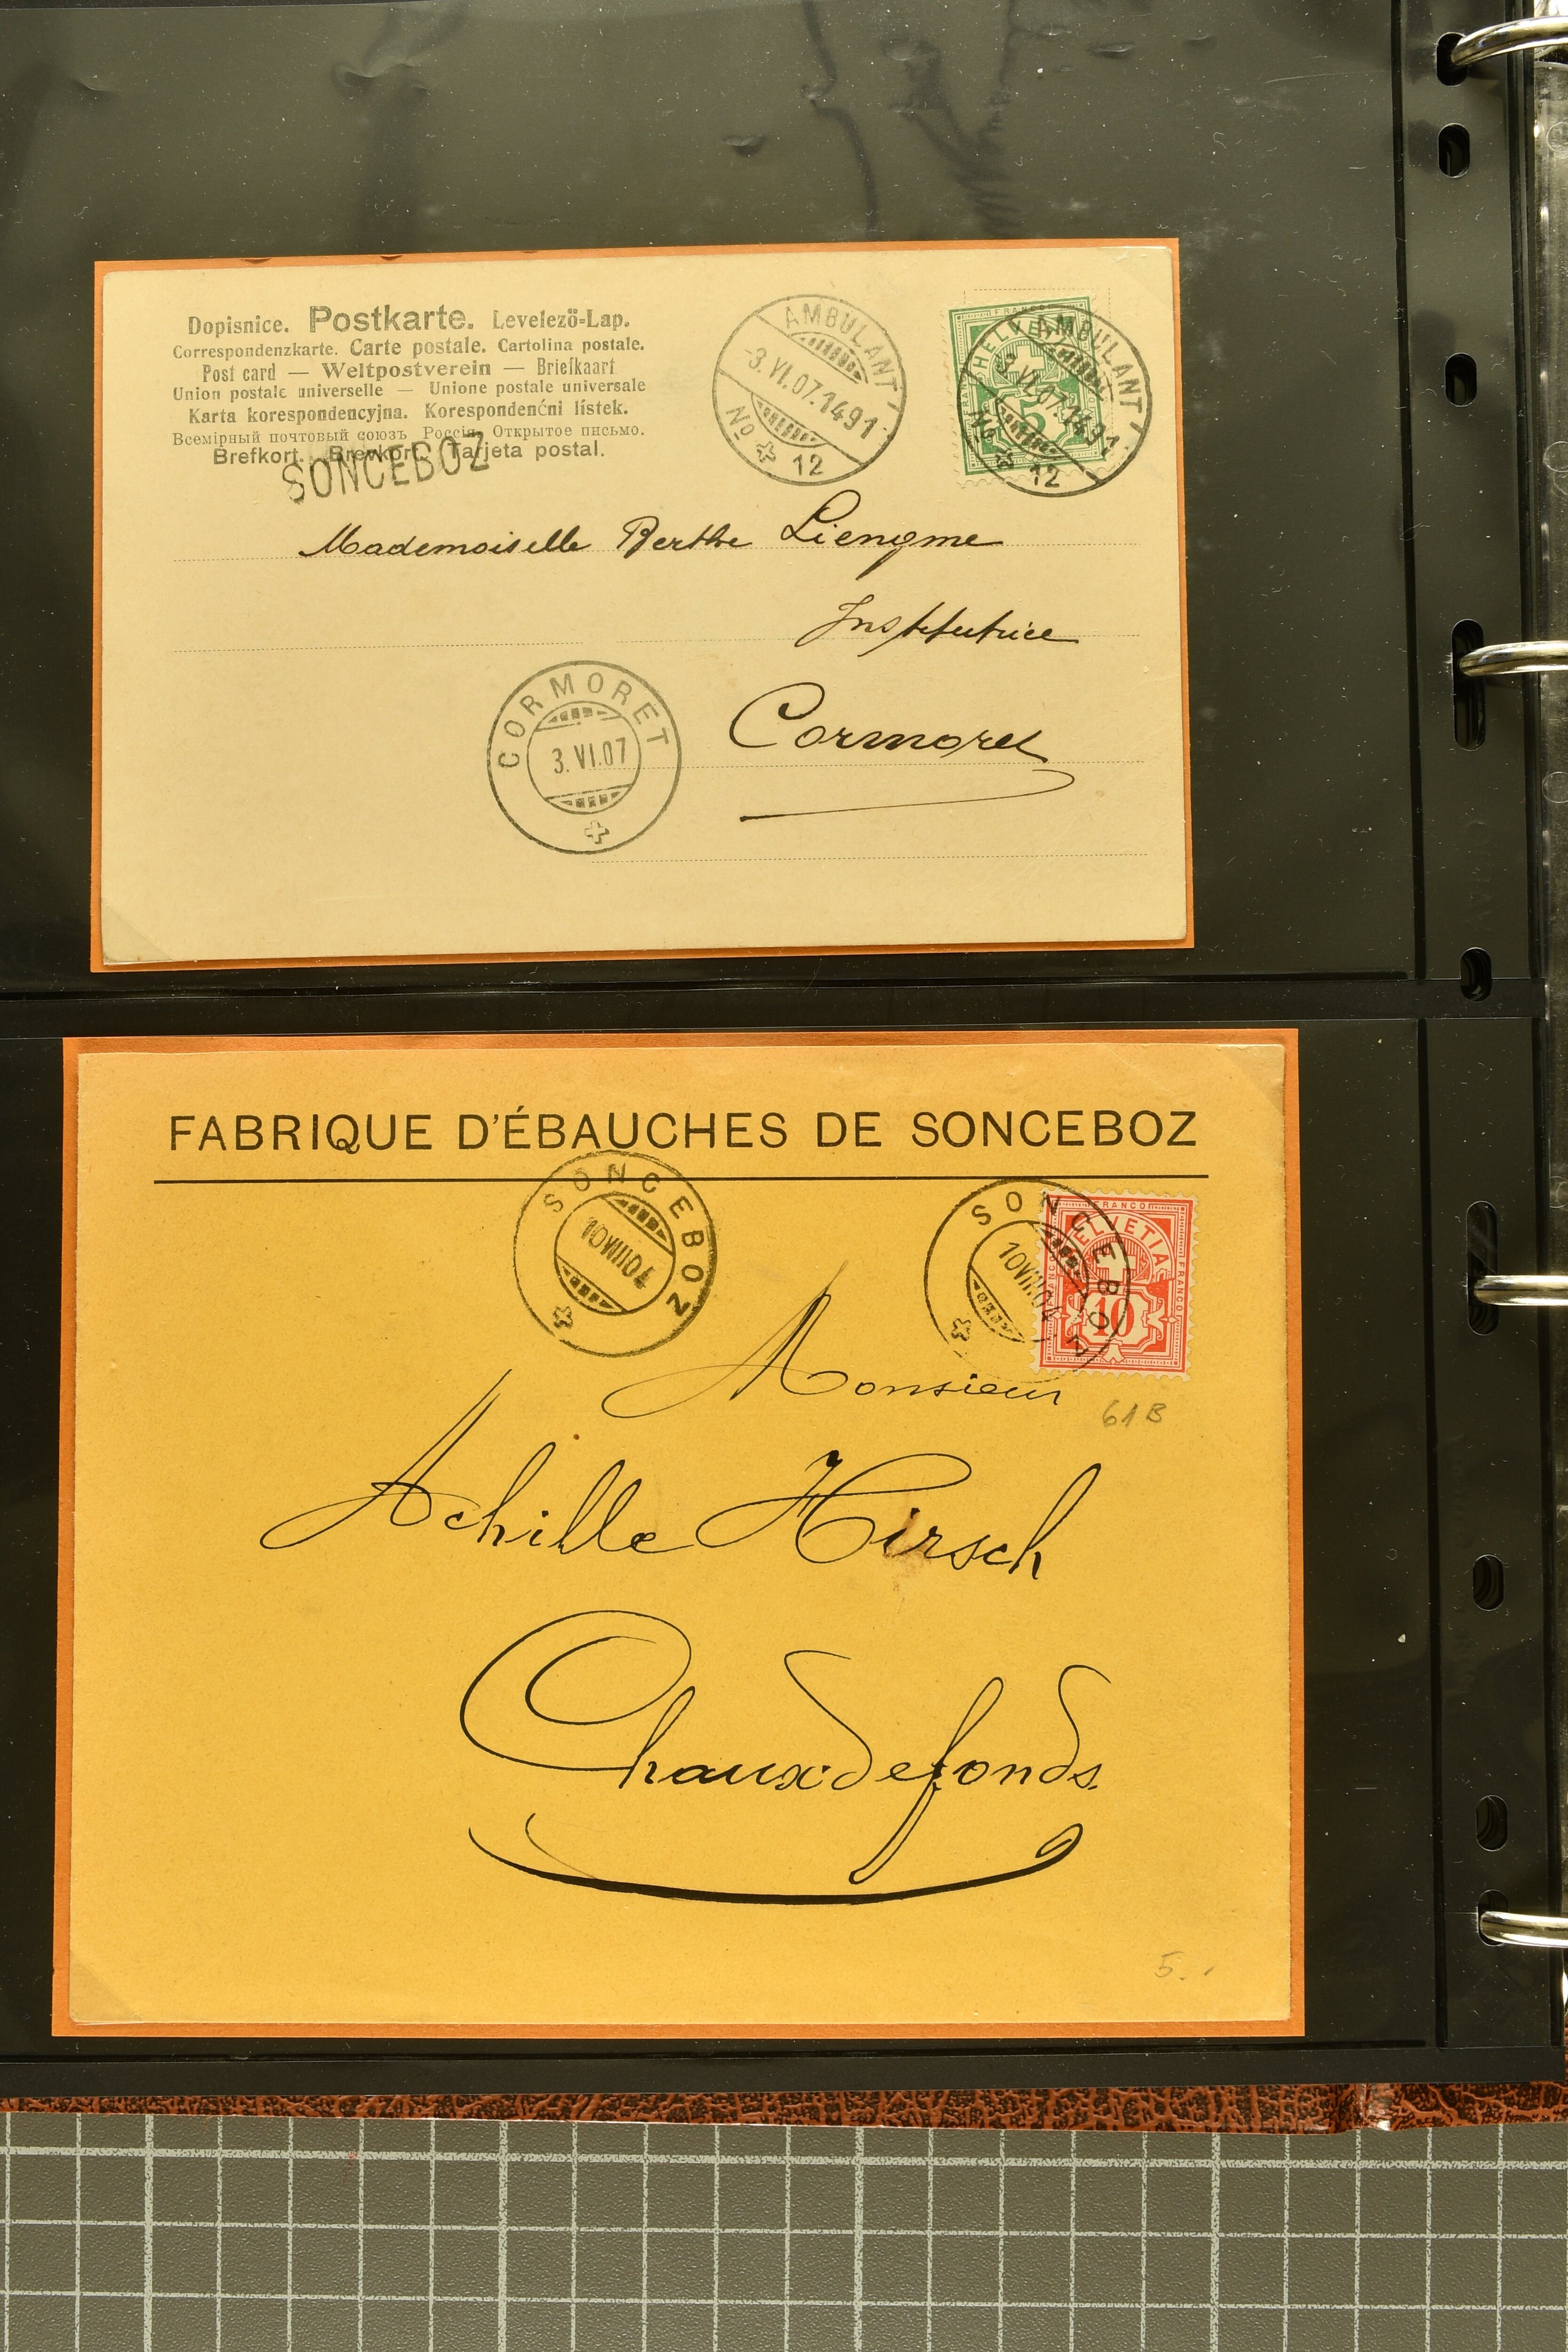 Dopisnice. Postkarte. Levelezö-Lap.
Correspondenzkarte. Carte postale. Cartolina postale.
Post card — Weltpostverein — Briefkaart
Union postale universelle — Unione postale universale
Karta korespondencyjna. Korespondenćni lístek.
Всемірный почтовый союзъ Россія. Открытое письмо.
Brefkort. Brevkort. Tarjeta postal.
SONCEBOZ
AMBULANT
-3.VI.07.1491
No 12
HELVETIA
FRANCO
5
AMBULANT
-3.VI.07.1491
No 12
Mademoiselle Berthe Liengme
Institutrice
Cormoret
CORMORET
3.VI.07
FABRIQUE D'ÉBAUCHES DE SONCEBOZ
SONCEBOZ
10VIII04
SONCEBOZ
10VIII04
FRANCO
HELVETIA
FRANCO
10
Monsieur
61B
Achille Hirsch
Chauxdefonds.
5.